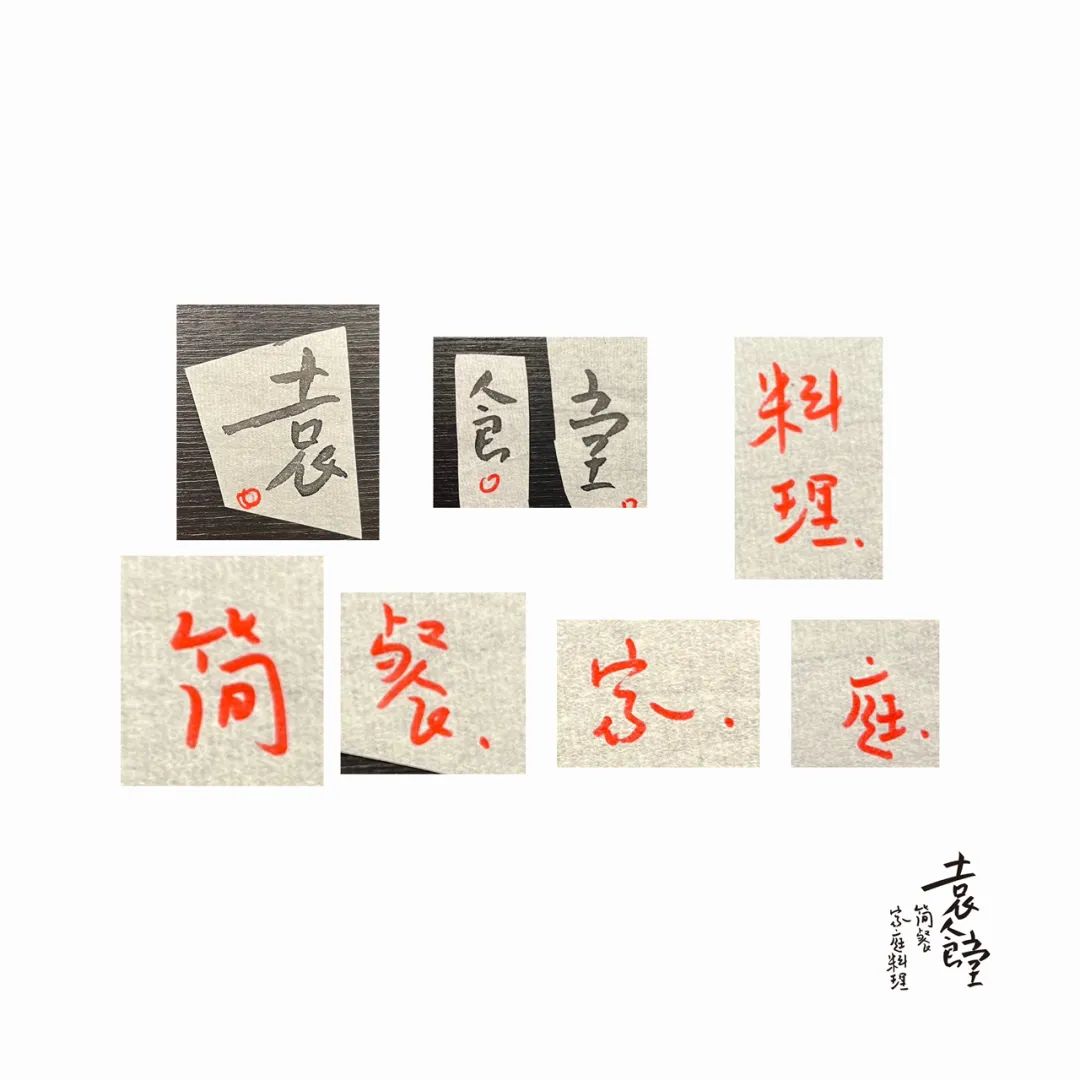 袁
食堂
料
理
简
餐
家
庭
袁食堂
简餐
家庭料理